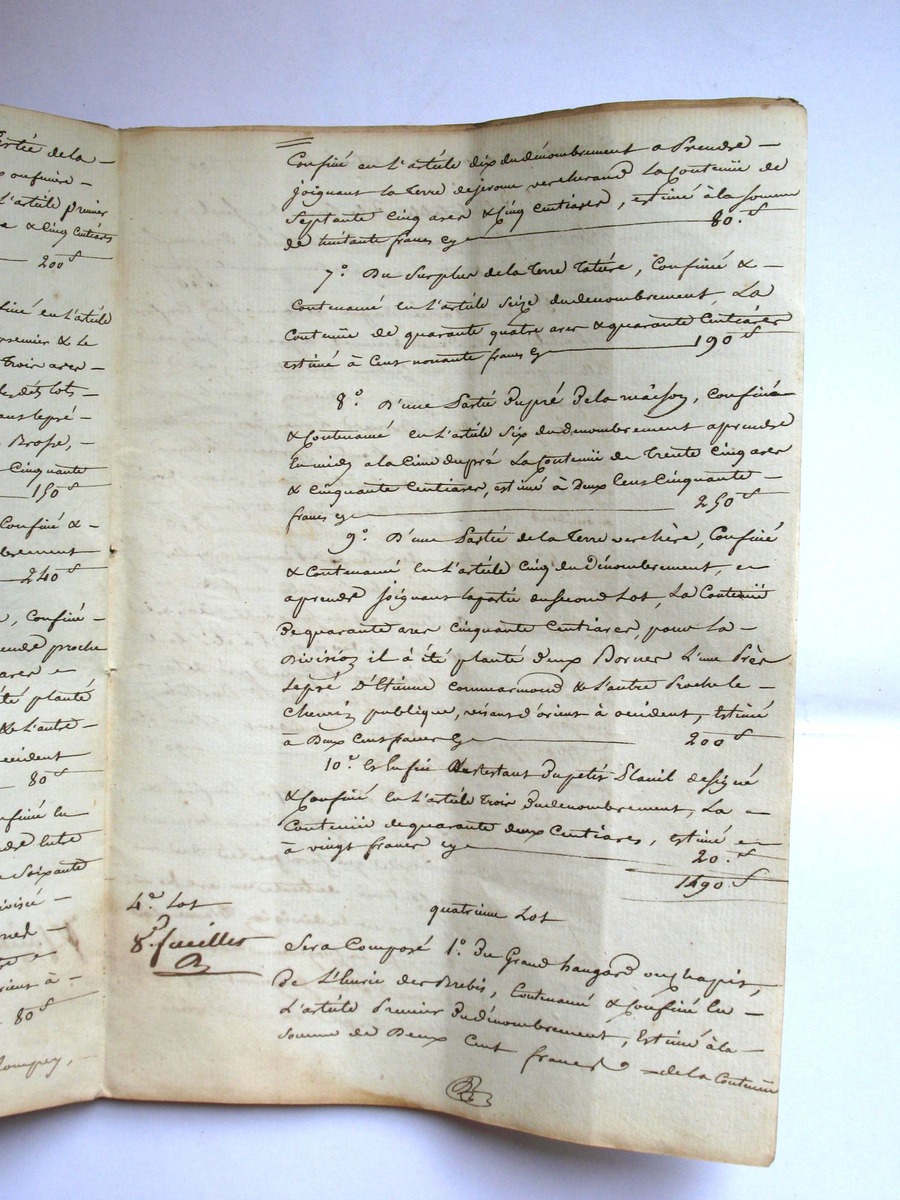 rtée de la -
confinée -
l'article premier
e & Cinq Centiares
200 f
finé en l'article
premier & le
trois ares -
des dts lots -
ans le pré -
Brosse, -
Cinquante
150 f
Confiné & -
brement
240 f
, confiné -
endre proche
ares -
été planté
& l'autre -
occident
80 f
nfiné en
dre entre
soixante
divisé -
rient à -
80 f
Confiné en l'article dix du dénombrement a Prendre -
joignant la terre de jerome vercherand La Contenüe de
Septante Cinq ares & Cinq Centiares, estimé à la somme
de huitante francs cy 80. f
7.° Du Surplus de la terre tatére, Confiné & -
Contenancé en l'article seize du dénombrement, La
Contenüe de quarante quatre ares & quarante Centiares
estimé à Cent nonante francs cy 190 f
8.° D'une Partie du pré de la maison, Confiné
& Contenancé en l'article six du dénombrement a prendre
en midy a la Cime du pré La Contenüe de trente cinq ares
& cinquante Centiares, estimé à Deux Cens Cinquante -
francs cy 250 f
9.° D'une Partie de la terre verchère, Confiné
& Contenancé en l'article Cinq du Dénombrement, -
a prendre joignant la partie du second Lot, La Contenüe
de quarante ares cinquante Centiares, pour la -
Division il à été planté deux Bornes L'une Près
le pré D'Etienne Commarmond & L'autre Proche le -
Chemin publique, visant d'orient à occident, Estimé
à Deux Cent francs cy 200 f
10.° Et Enfin du restant du petit Plauil designé
& Confiné en l'article trois du dénombrement, La -
Contenüe de quarante deux Centiares, estimé -
à vingt francs cy 20. f
1490. f
4.e Lot
8.e feuillet
quatrieme Lot
Sera Composé 1.° Du Grand hangard ou Chapit,
De L'Ecurie des Brebis, Contenancé & Confiné en -
L'article Premier du dénombrement, Estimé à la -
somme de Deux Cent francs - de la Contenüe